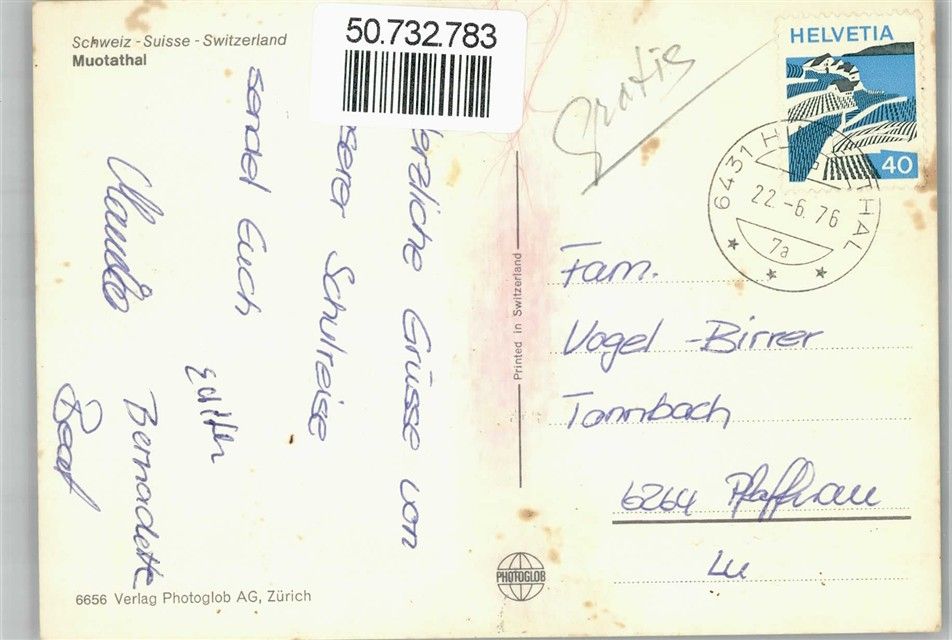 Schweiz - Suisse - Switzerland
Muotathal
50.732.783
HELVETIA
40
Gratis
6431 H THAL
22.-6.76
7a
erzliche Grüsse von
serer Schulreise
sendet Euch
Edith
Claudia
Bernadette
Beat
Printed in Switzerland
Fam.
Vogel-Birrer
Tannbach
6264 Pfaffnau
Lu
PHOTOGLOB
6656 Verlag Photoglob AG, Zürich